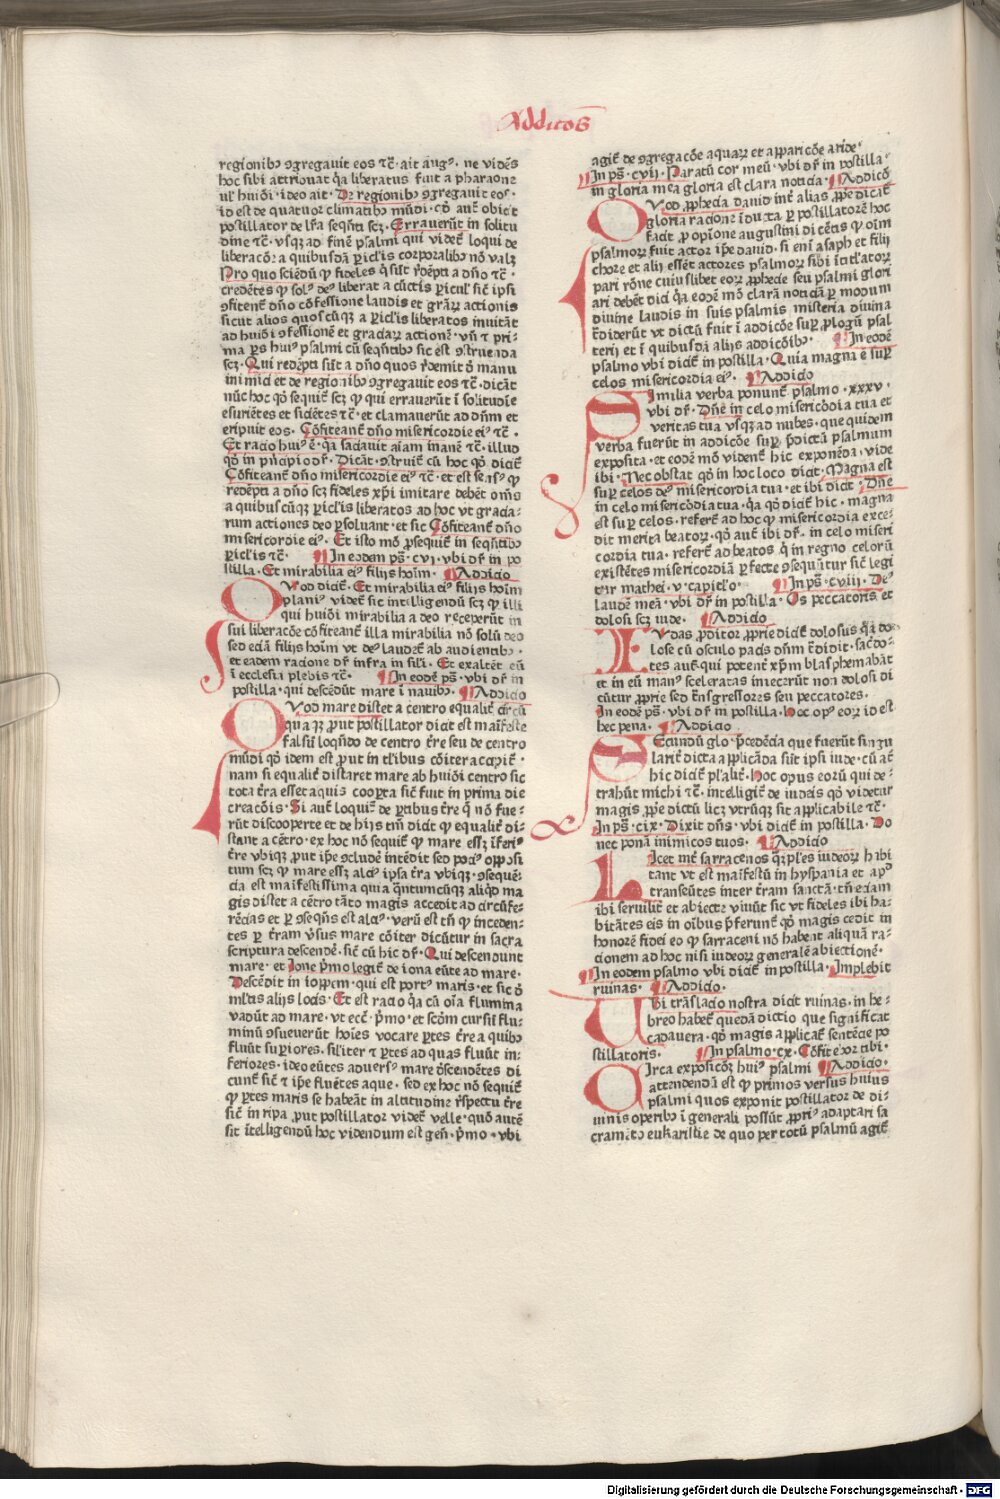 Addicōs
regionibꝰ ꝯgregauit eos ꞇc̄. ait augꝰ. ne vidēs
hoc sibi attribuat q̄a liberatus fuit a pharaone
ul' huiōi. ideo ait. De regionibꝰ ꝯgregauit eos.
id est de quatuor climatibꝰ mūdi. qd̄ aut̄ obicit
postillator de lr̄a seqn̄ti scꝫ. Errauerūt in solitu
dine ꞇc̄. vsqꝫ ad finē psalmi qui videt̄ loqui de
liberacōe a quibusdā ꝑiclis corporalibꝰ nō valꝫ
Pro quo sciēdū ꝙ fideles q̄ sūt rēdēpti a dn̄o ꞇc̄.
credētes ꝙ solꝰ deꝰ liberat a cūctis ꝑiculꝭ sic̄ ipsi
ꝯfitent̄ dn̄o cōfessione laudis et grāꝝ actionis
sicut alios quoscūqꝫ a ꝑiclis liberatos inuitāt
ad huiōi ꝯfessionē et graciaꝝ actionē. vn̄ ꞇ pri-
ma ꝑs huiꝰ psalmi cū seqn̄tibꝰ sic est ꝯstruenda
scꝫ. Qui redēpti sūt a dn̄o quos redemit d̄ manu
inimici et de regionibꝰ ꝯgregauit eos ꞇc̄. dicāt
nūc hoc qd̄ sequit̄ scꝫ ꝙ qui errauerūt ī solitudīe
esuriētes et sitiētes ꞇc̄. et clamauerūt ad dn̄m et
eripuit eos. Cōfiteant̄ dn̄o misericordie eiꝰ ꞇc̄.
Et racio huiꝰ ē. q̄a saciauit aīam inanē ꞇc̄. illud
qd̄ in pn̄cipio dr̄. Dicāt. ꝯstruit̄ cū hoc qd̄ dicit̄
Cōfiteant̄ dn̄o misericordie eiꝰ ꞇc̄. et est sensꝰ ꝙ
redēpti a dn̄o scꝫ fideles xp̄i imitare debēt om̄s
a quibuscūqꝫ ꝑiclis liberatos ad hoc vt gracia-
rum actiones deo ꝑsoluant. et sic Cōfiteant̄ dn̄o
misericordie eiꝰ. Et isto mō ꝓsequit̄ in seqn̄tibꝰ
ꝑiclis ꞇc̄. In eodem pꝭ. cvi. vbi dr̄ in po
stilla. Et mirabilia eiꝰ filijs hoīm. Addicio
Qvod dicit̄. Et mirabilia eiꝰ filijs hoīm
planiꝰ videt̄ sic intelligendū scꝫ ꝙ illi
qui huiōi mirabilia a deo receperūt in
sui liberacōe cōfiteant̄ illa mirabilia nō solū deo
sed eciā filijs hoīm vt deꝰ laudet̄ ab audientibꝰ.
et eadem racione dr̄ infra in sili. Et exaltēt eū
ī ecclesia plebis ꞇc̄. In eodē pꝭ. vbi dr̄ in
postilla. qui descēdūt mare ī nauibꝰ. Addicio
Qvod mare distet a centro equalit̄ circū
quaqꝫ ꝓut postillator dicit est maīfeste
falsū loqn̄do de centro t̄re seu de centro
mūdi qd̄ idem est ꝓut in tl̄ibus cōiter accipit̄.
nam si equalit̄ distaret mare ab huiōi centro sic
tota t̄ra esset aquis cooꝑta sic̄ fuit in prima die
creacōis. Si aut̄ loquit̄ de ꝑtibus t̄re q̄ nō fue-
rūt discooperte et de hijs tm̄ dicit ꝙ equalit̄ di-
stant a cētro. ex hoc nō sequit̄ ꝙ mare essꝫ īferiꝰ
t̄re vbiqꝫ ꝓut ip̄e ꝯcludē intēdit sed pociꝰ opposi
tum scꝫ ꝙ mare essꝫ alciꝰ ipsa t̄ra vbiqꝫ. ꝯsequē-
cia est maifestissima quia q̄ntumcūqꝫ aliqd̄ ma
gis distet a cētro tāto magis accedit ad circūfe-
rēcias et ꝑ ꝯseqn̄s est alciꝰ. verū est tn̄ ꝙ inceden-
tes ꝑ t̄ram v̄sus mare cōiter dicūtur in sacra
scriptura descendē. sic̄ cū hic dr̄. Qui descendunt
mare. et Ione pͥmo legit̄ de iona eūte ad mare.
Descēdit in ioppem. qui est portꝰ maris. et sic d̄
ml̄tis alijs locis. Et est racio q̄a cū oīa flumina
vadūt ad mare. vt ecc̄. pͥmo. et scd̄m cursū flu-
minū ꝯsueuerūt hoīes vocare ꝑtes t̄re a quibꝰ
fluūt suꝑiores. siliter ꞇ ꝑtes ad quas fluūt in-
feriores. ideo eūtes aduersꝰ mare d̄scēdētes di
cunt̄ sic̄ ꞇ ip̄e fluētes aque. sed ex hoc nō sequit̄
ꝙ ꝑtes maris se habeāt in altitudine r̄spectu t̄re
sic̄ in ripa ꝓut postillator videt̄ velle. quō autē
sit ītelligendū hoc videndum est gen̄. pͥmo. vbi
agit̄ de ꝯgregacōe aquaꝝ et apparicōe aride.
In pꝭ. cvij. Paratū cor meū. vbi dr̄ in postilla.
in gloria mea gloria est clara noticia. Addicō
Qvod ꝓphecia dauid int̄ alias ꝓprie dicat̄
gloria racione īducta ꝑ postillatorē hoc
facit ꝓ opīone augustini dicētis ꝙ oīm
psalmoꝝ fuit actor ip̄e dauid. si eni asaph et filij
chore et alij essēt actores psalmoꝝ sibi ītitlatoꝝ
pari rōne cuiuslibet eoꝝ ꝓphecie seu psalmi glori
ari debēt dici q̄a eodē mō clarā noticiā ꝑ modum
diuine laudis in suis psalmis misteria diuina
t̄diderūt vt dictū fuit ī addicōe suꝑ ꝓlogū psal
terij et ī quibusdā alijs addicōibꝰ. In eodē
psalmo vbi dicit̄ in postilla. Quia magna ē suꝑ
celos misericordia eiꝰ. Addicio
Similia verba ponunt̄ psalmo. xxxv.
vbi dr̄. Dn̄e in celo misericōdia tua et
veritas tua vsqꝫ ad nubes. que quidem
verba fuerūt in addicōe suꝑ p̄dictū psalmum
exposita. et eodē mō vident̄ hic exponēda. vide
ibi. Nec obstat qd̄ in hoc loco dicit̄. Magna est
suꝑ celos deꝰ misericordia tua. et ibi dicit̄. Dn̄e
in celo misericōdia tua. q̄a qd̄ dicit̄ hic. magna
est suꝑ celos. refert̄ ad hoc ꝙ misericordia exce-
dit merita beatoꝝ. qd̄ aut̄ ibi dr̄. in celo miseri
cordia tua. refert̄ ad beatos q̄ in regno celorū
existētes misericordiā ꝑfecte ꝯsequūtur sic̄ legi
tur mathei. v. capitlo. In pꝭ. cviij. Deꝰ
laudē meā. vbi dr̄ in postilla. Os peccatoris et
dolosi scꝫ iude. Addicio
Iudas ꝓditor ꝓprie dicit̄ dolosus q̄a do-
lose cū osculo pacis dn̄m t̄didit. sac̄do-
tes aut̄ qui potent̄ xp̄m blasphemabāt
et in eū manꝰ sceleratas iniecerūt non dolosi di
cūtur ꝓprie sed t̄nsgressores seu peccatores.
In eodē pꝭ. vbi dr̄ in postilla. hoc opꝰ eoꝝ id est
hec pena. Addicio
Secundū glo. p̄cedēcia que fuerūt singu
larit̄ dicta applicāda sūt ipsi iude. cū aūt
hic dicit̄ pl̄alit̄. hoc opus eorū qui de-
trahūt michi ꞇc̄. intelligit̄ de iudeis qd̄ videtur
magis ꝓprie dictū licꝫ vtrūqꝫ sit applicabile ꞇc̄.
In pꝭ. cix. Dixit dn̄s. vbi dicit̄ in postilla. Do
nec ponā inimicos tuos. Addicio
Licet int̄ sarracenos q̄ꝫples iudeoꝝ habi
tant vt est maīfestū in hyspania et apd̄
transeūtes inter t̄ram sanctā. tn̄ eciam
ibi seruilit̄ et abiecte viuūt sic vt fideles ibi ha-
bitātes eis in oībus p̄ferunt̄ qd̄ magis cedit in
honorē fidei eo ꝙ sarraceni nō habent aliquā ra-
cionem ad hoc nisi iudeoꝝ generalē abiectionē.
In eodem psalmo vbi dicit̄ in postilla. Implebit
ruinas. Addicio.
Vbi trāslacio nostra dicit ruinas. in he-
breo habet̄ quedā dictio que significat
cadauera. qd̄ magis applicat̄ sentēcie po
stillatoris. In psalmo. cx. Cōfitebor tibi.
Circa exposicōꝫ huiꝰ psalmi Addicio.
attendendā est ꝙ primos versus huius
psalmi quos exponit postillator de di-
uinis operibꝰ ī generali possūt ꝓpriꝰ adaptari sa
cramēto eukaristie de quo per totū psalmū agit̄
Digitalisierung gefördert durch die Deutsche Forschungsgemeinschaft - DFG